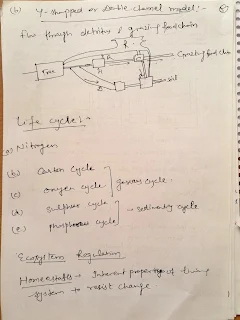 (b) Y-shaped or double channel model:-
flow through detritus & grazing food chain
R
Grazing food chain
Tree
R
soil
Life cycle:-
(a) Nitrogen
(b) Carbon cycle
(c) oxygen cycle
gaseous cycle.
(d) sulphur cycle
(e) phosphorous cycle
→ sedimentary cycle
Ecosystem Regulation
Homeostates → Inherent properties of living
system to resist change.